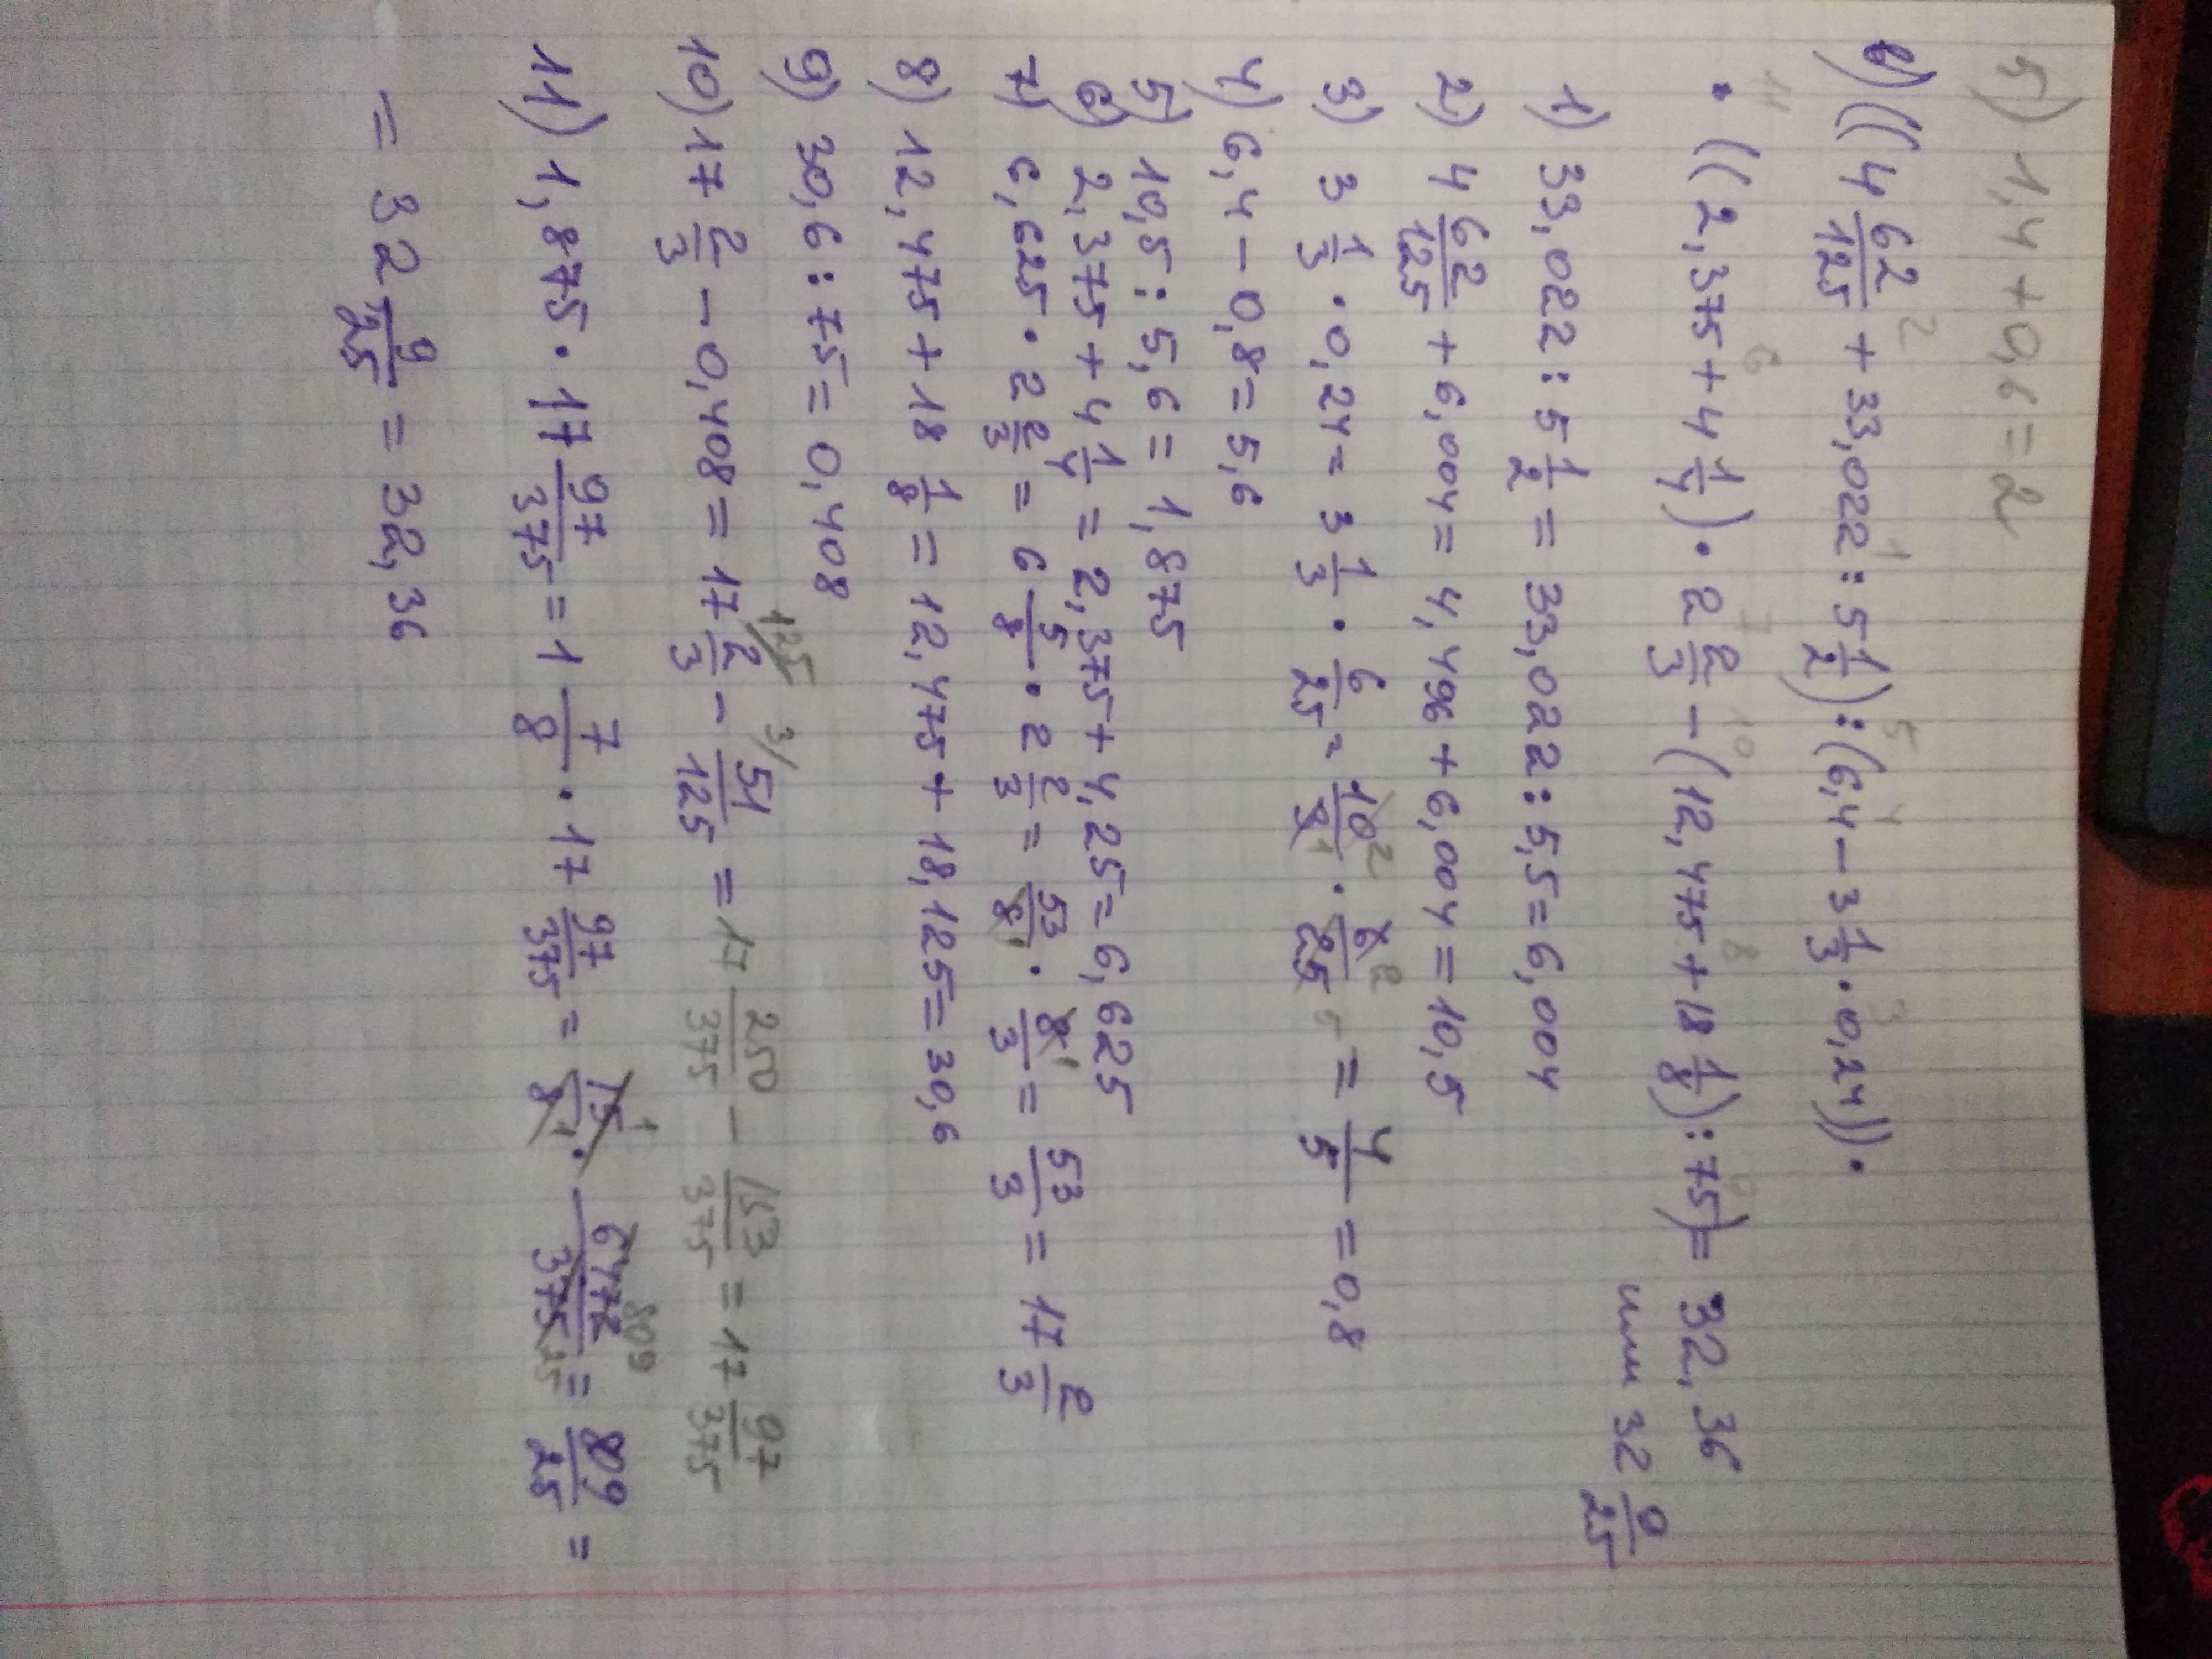 5) 1,4+0,6=2
в) ((4 62/125 + 33,022 : 5 1/2) : (6,4 − 3 1/3 · 0,24)) ·
· ((2,375 + 4 1/4) · 2 2/3 − (12,475 + 18 1/8) : 75) = 32,36
или 32 9/25
1) 33,022 : 5 1/2 = 33,022 : 5,5 = 6,004
2) 4 62/125 + 6,004 = 4,496 + 6,004 = 10,5
3) 3 1/3 · 0,24 = 3 1/3 · 6/25 = 10/3 · 6/25 = 4/5 = 0,8
4) 6,4 − 0,8 = 5,6
5) 10,5 : 5,6 = 1,875
6) 2,375 + 4 1/4 = 2,375 + 4,25 = 6,625
7) 6,625 · 2 2/3 = 6 5/8 · 2 2/3 = 53/8 · 8/3 = 53/3 = 17 2/3
8) 12,475 + 18 1/8 = 12,475 + 18,125 = 30,6
9) 30,6 : 75 = 0,408
10) 17 2/3 − 0,408 = 17 2/3 − 51/125 = 17 250/375 − 153/375 = 17 97/375
11) 1,875 · 17 97/375 = 1 7/8 · 17 97/375 = 15/8 · 6472/375 = 809/25 =
= 32 9/25 = 32,36